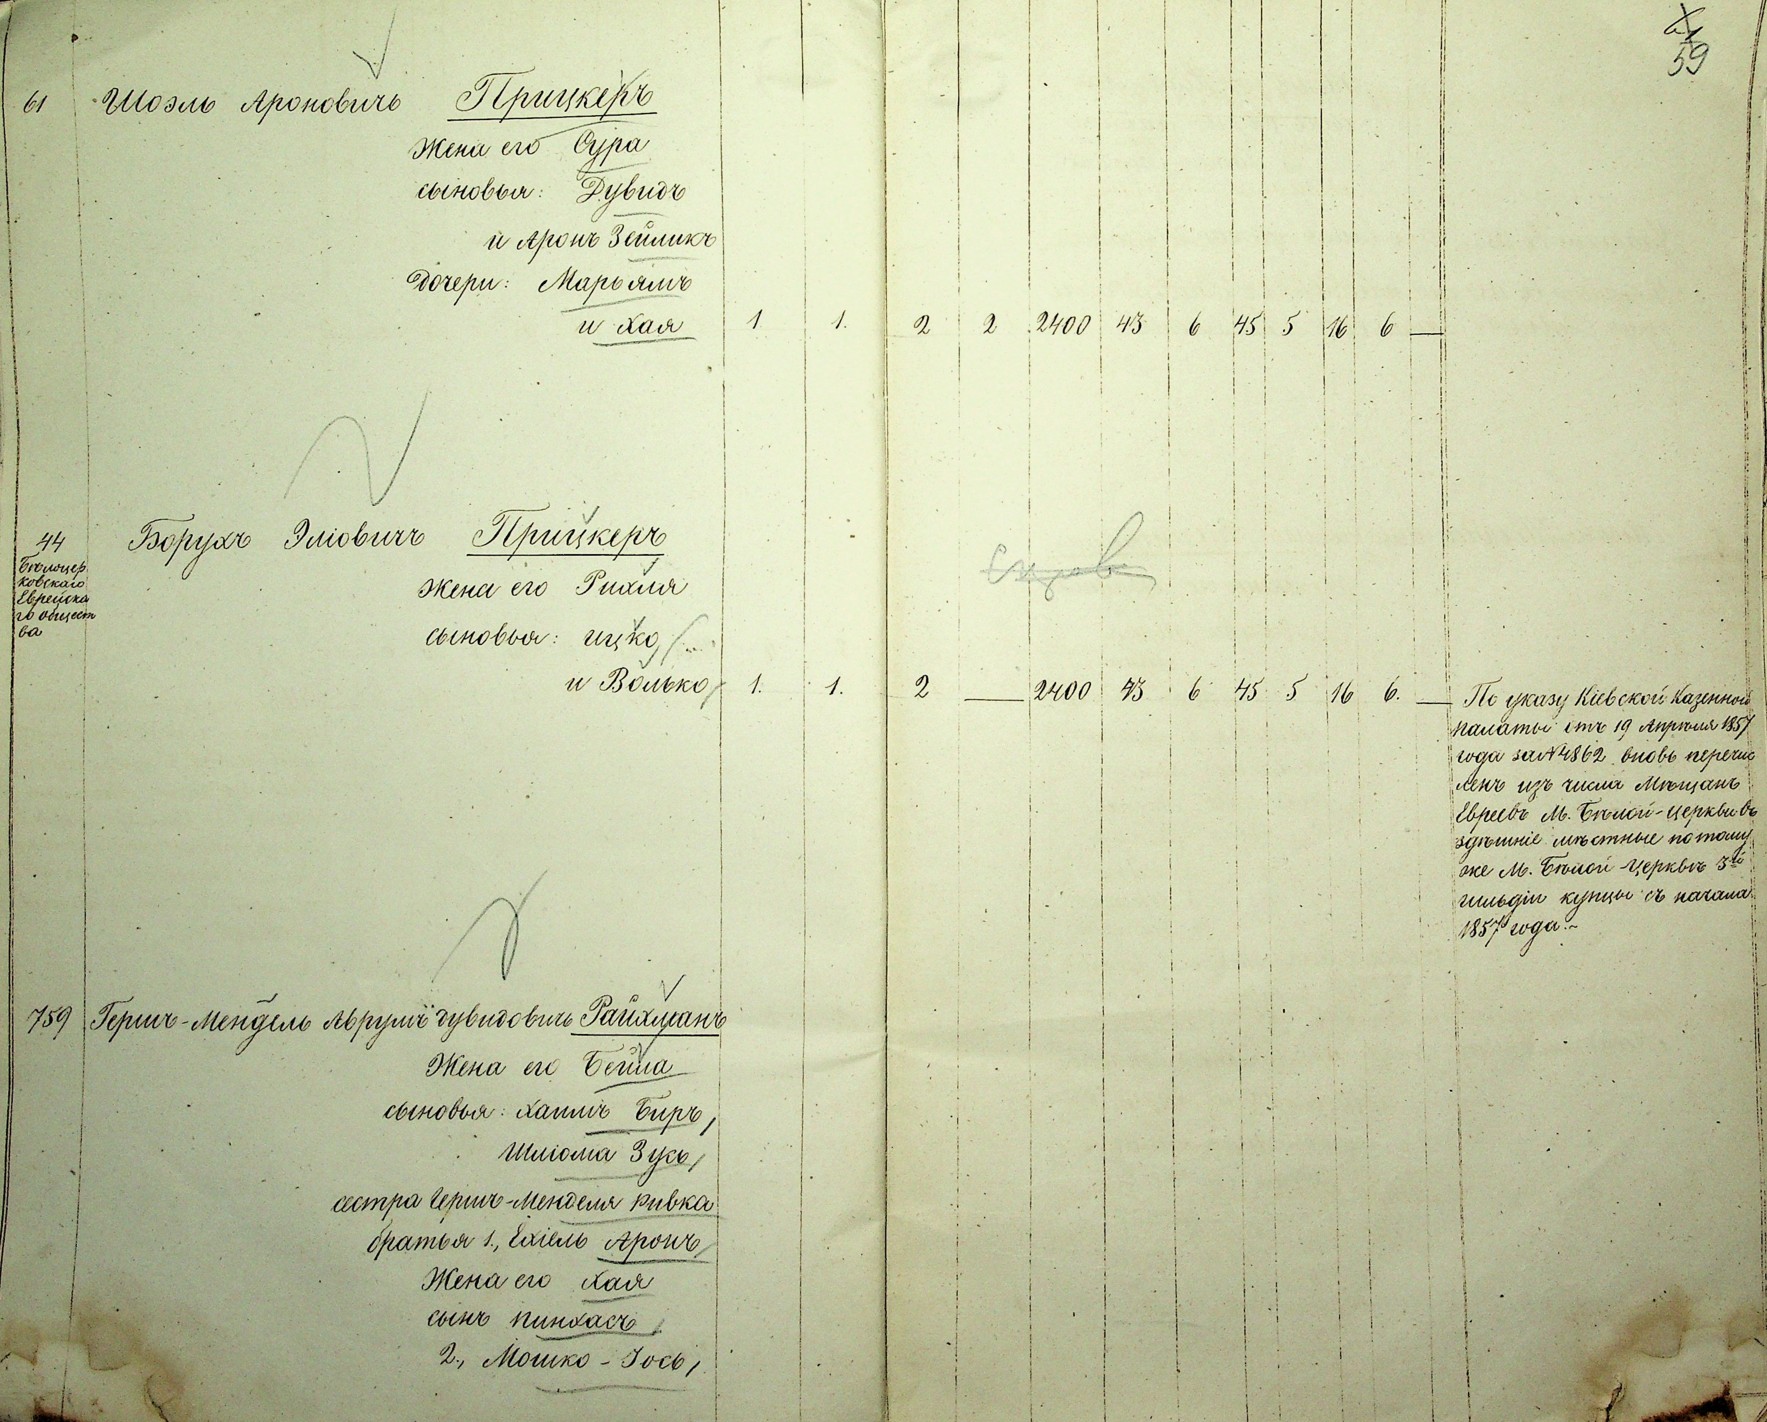 59
61 Шоэль Ароновичъ Прицкеръ
Жена его Сура
сыновья: Дувидъ
и Аронъ Зейликъ
Дочери: Марьямъ
и Хая 1 1. 2 2 2400 43 6 45 5 16 6 —
44 Борухъ Эліовичъ Прицкеръ
Бѣлоцер
ковскаго
Еврейска
го общест
ва
Жена его Рихля
сыновья: Ицко,
и Волько, 1. 1. 2 — 2400 43 6 45 5 16 6. —
По указу Кіевской Казенной
палаты отъ 19 Апрѣля 1857
года за №4862 вновь перечис
ленъ изъ числа Мѣщанъ
Евреевъ М. Бѣлой-Церкви въ
здѣшніе мѣстные по тому
же М. Бѣлой-Церквѣ 3й
гильдіи купцы съ начала
1857 года.~
759 Гершъ-Мендель Аврумъ Дувидовичъ Райхманъ
Жена его Бейла
сыновья: Хаимъ Биръ,
Шліома Зусь,
сестра Гершъ-Менделя Ривка
братья 1., Ехіель Аронъ,
Жена его Хая
сынъ Пинхасъ,
2., Мошко-Іось,